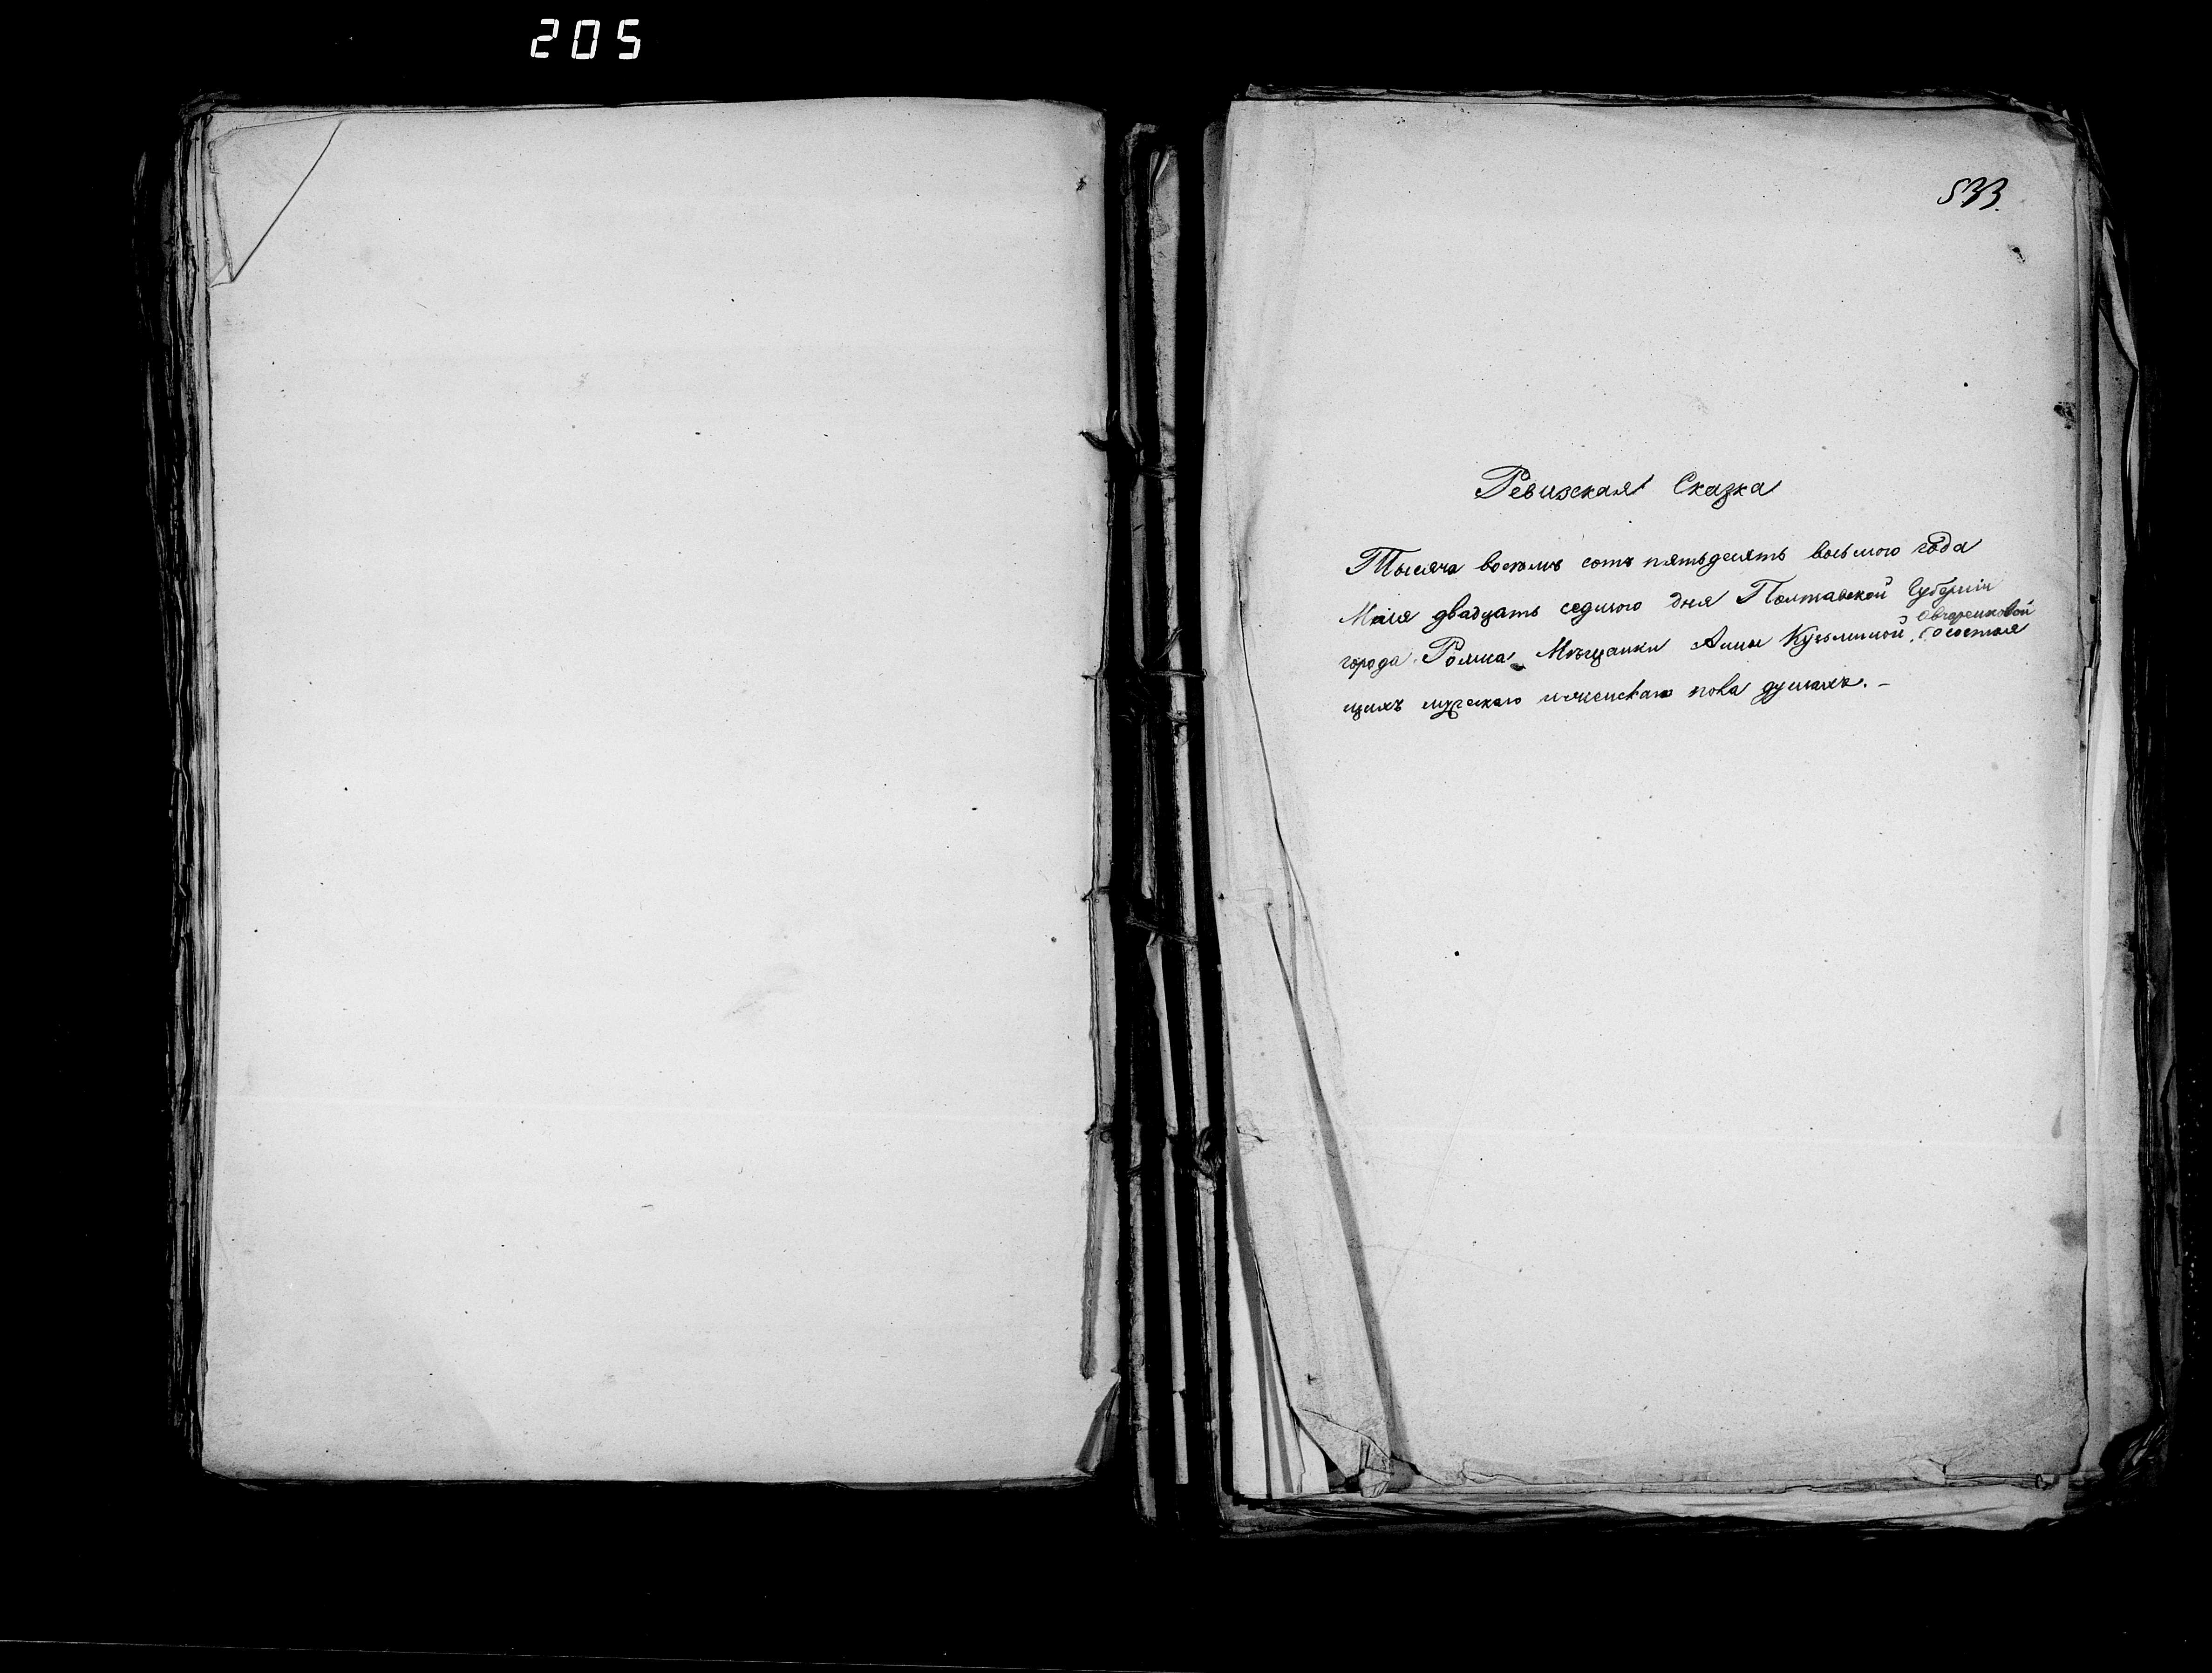 205
533.
Ревизская Сказка
Тысяча восемь сотъ пятьдесятъ восьмого года
Маія двадцать седмого дня Полтавской Губерніи
города Ромна Мѣщанки Анны Кузьминой, Овчаренковой о состоя
щихъ мужскаго и женскаго пола душахъ. –